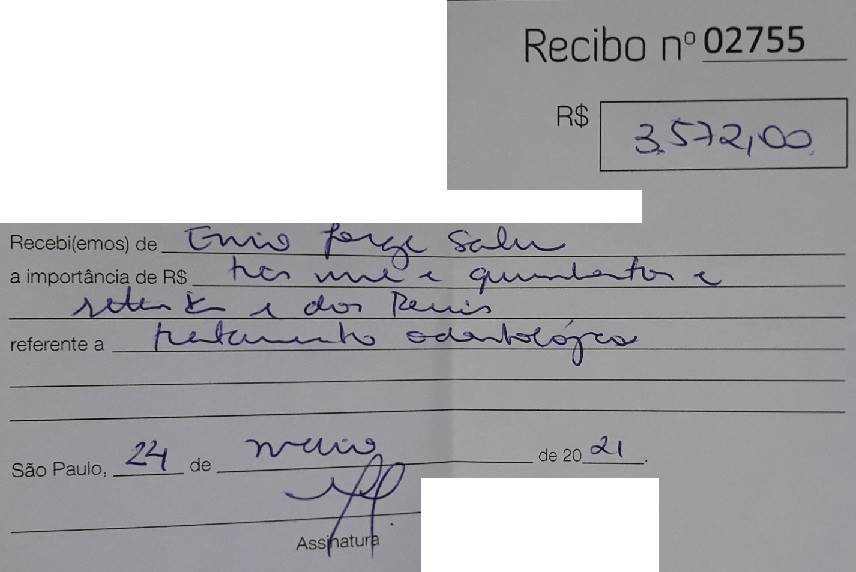 Recibo nº 02755
R$ 3.572,00
Recebi(emos) de Enio Jorge Salu
a importância de R$ três mil e quinhentos e
setenta e dois Reais
referente a tratamento odontológico
São Paulo, 24 de maio de 2021.
Assinatura